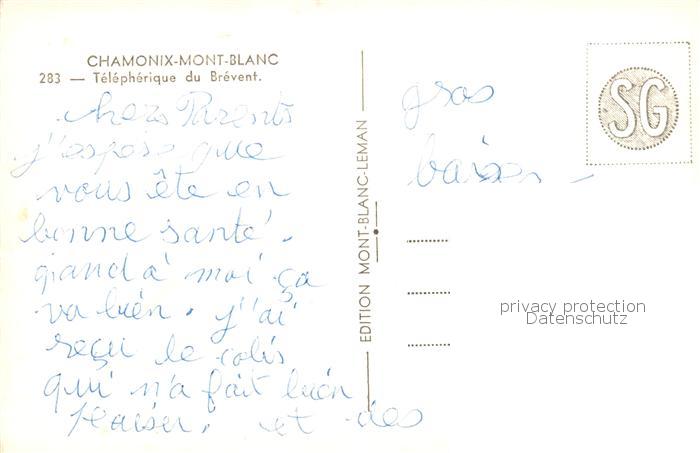 CHAMONIX-MONT-BLANC
283 — Téléphérique du Brévent.
chers Parents
j'espère que
vous ête en
bonne santé.
quand à moi ça
va bien. j'ai
reçu le colis
qui n'a fait bien
plaiser. et des
gros
baiser
EDITION MONT-BLANC-LEMAN
SG
privacy protection
Datenschutz